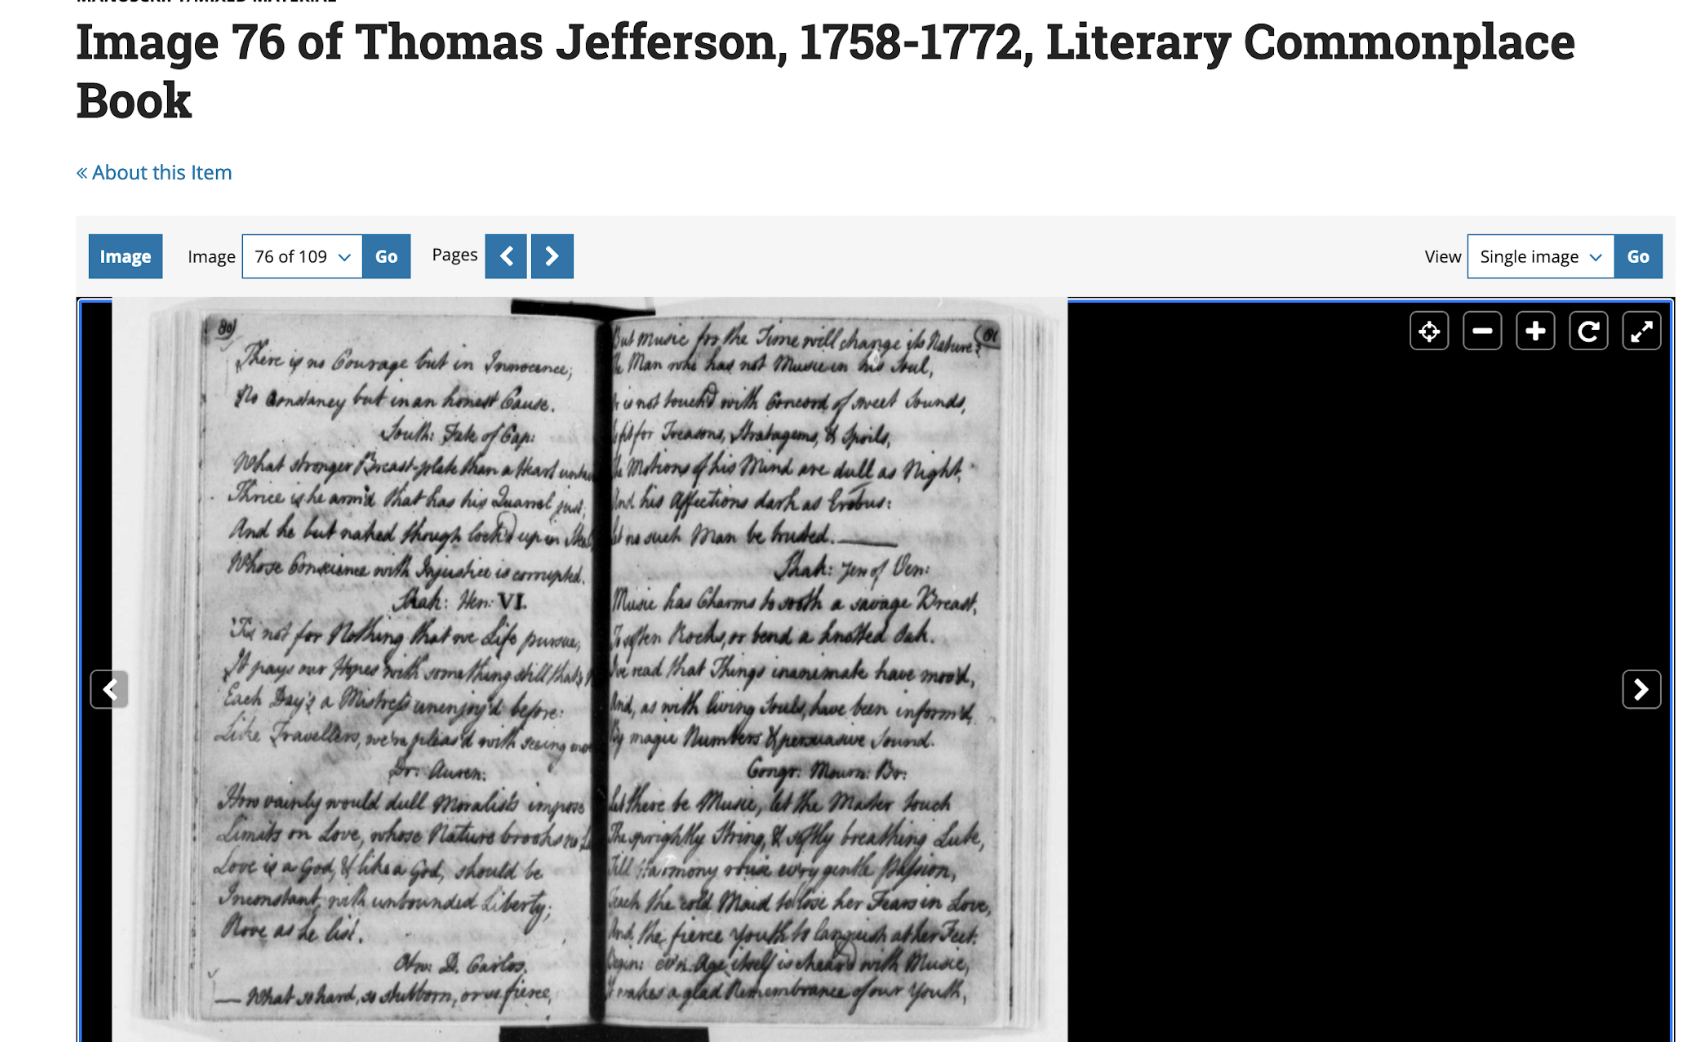 Image 76 of Thomas Jefferson, 1758-1772, Literary Commonplace
Book
« About this Item
Image
Image
76 of 109
Go
Pages
View
Single image
Go
80)
There is no Courage but in Innocence;
No Constancy but in an honest Cause.
South: Fate of Cap:
What stronger Breast-plate than a Heart
Thrice is he arm'd that has his Quarrel just;
And he but naked though lock'd up in
Whose Conscience with Injustice is corrupted.
Shak: Hen: VI.
'Tis not for Nothing that we Life pursue;
It pays our Hopes with something still that's
Each Day's a Mistress unenjoy'd before:
Like Travellers, we're pleas'd with seeing
Dr: Auren:
How vainly would dull Moralists impose
Limits on Love, whose Nature brooks no
Love is a God, & like a God, should be
Inconstant, with unbounded Liberty;
Rove as he list.
Otw: D. Carlos.
— What so hard, so stubborn, or so fierce,
(81
But music for the Time will change its Nature?
Man who has not Music in his Soul,
is not touch'd with Concord of sweet Sounds,
fit for Treasons, Stratagems, & Spoils,
Motions of his Mind are dull as Night,
And his Affections dark as Erebus:
no such Man be trusted. —
Shak: Ven:
Music has Charms to sooth a savage Breast,
To soften Rocks, or bend a knotted Oak.
I've read that Things inanimate have mov'd,
And, as with living Souls, have been inform'd,
By magic Numbers & persuasive Sound.
Congr: Mourn: Br:
Let there be Music, let the Master touch
The sprightly String, & softly breathing Lute,
Till Harmony rouse every gentle Passion,
Teach the cold Maid to lose her Fears in Love,
And the fierce Youth to languish at her Feet.
Begin: ev'n Age itself is chear'd with Music,
It makes a glad Remembrance of our Youth,